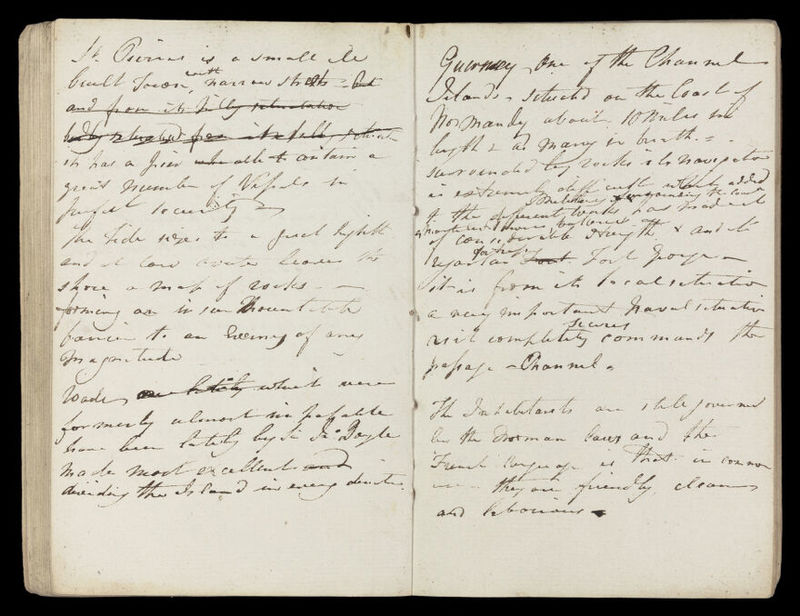 St. Pierres is a small ile
built Town with narrow streets - but
and from its hilly situation
it has a Pier able to contain a
great number of Vessels in
perfect security
the tide rises to a great hight
and at low water leaves the
shore a mass of rocks -
forming an in surmountable
barrier to an Enemy of any
magnitude
Roads are lately which were
formerly almost impassable
have been lately by Sr. Jn. Doyle
made most excellent and
dividing the Island in every direction
Guernsey one of the Channel
Islands - situated on the Coast of
Normandy about 10 Miles in
length & as many in breth. -
surrounded by rocks its navigation
is extremely difficult which added
to the different works surrounding the Coast
of considerable strength & and the
regular fortress Fort George -
it is from its local situation
a very important Naval situation
as it completely secures commands the
passage - Channel -
The Inhabitants are still governed
by the Norman laws and the
French language is that in common
use - they are friendly clean
and laborious -